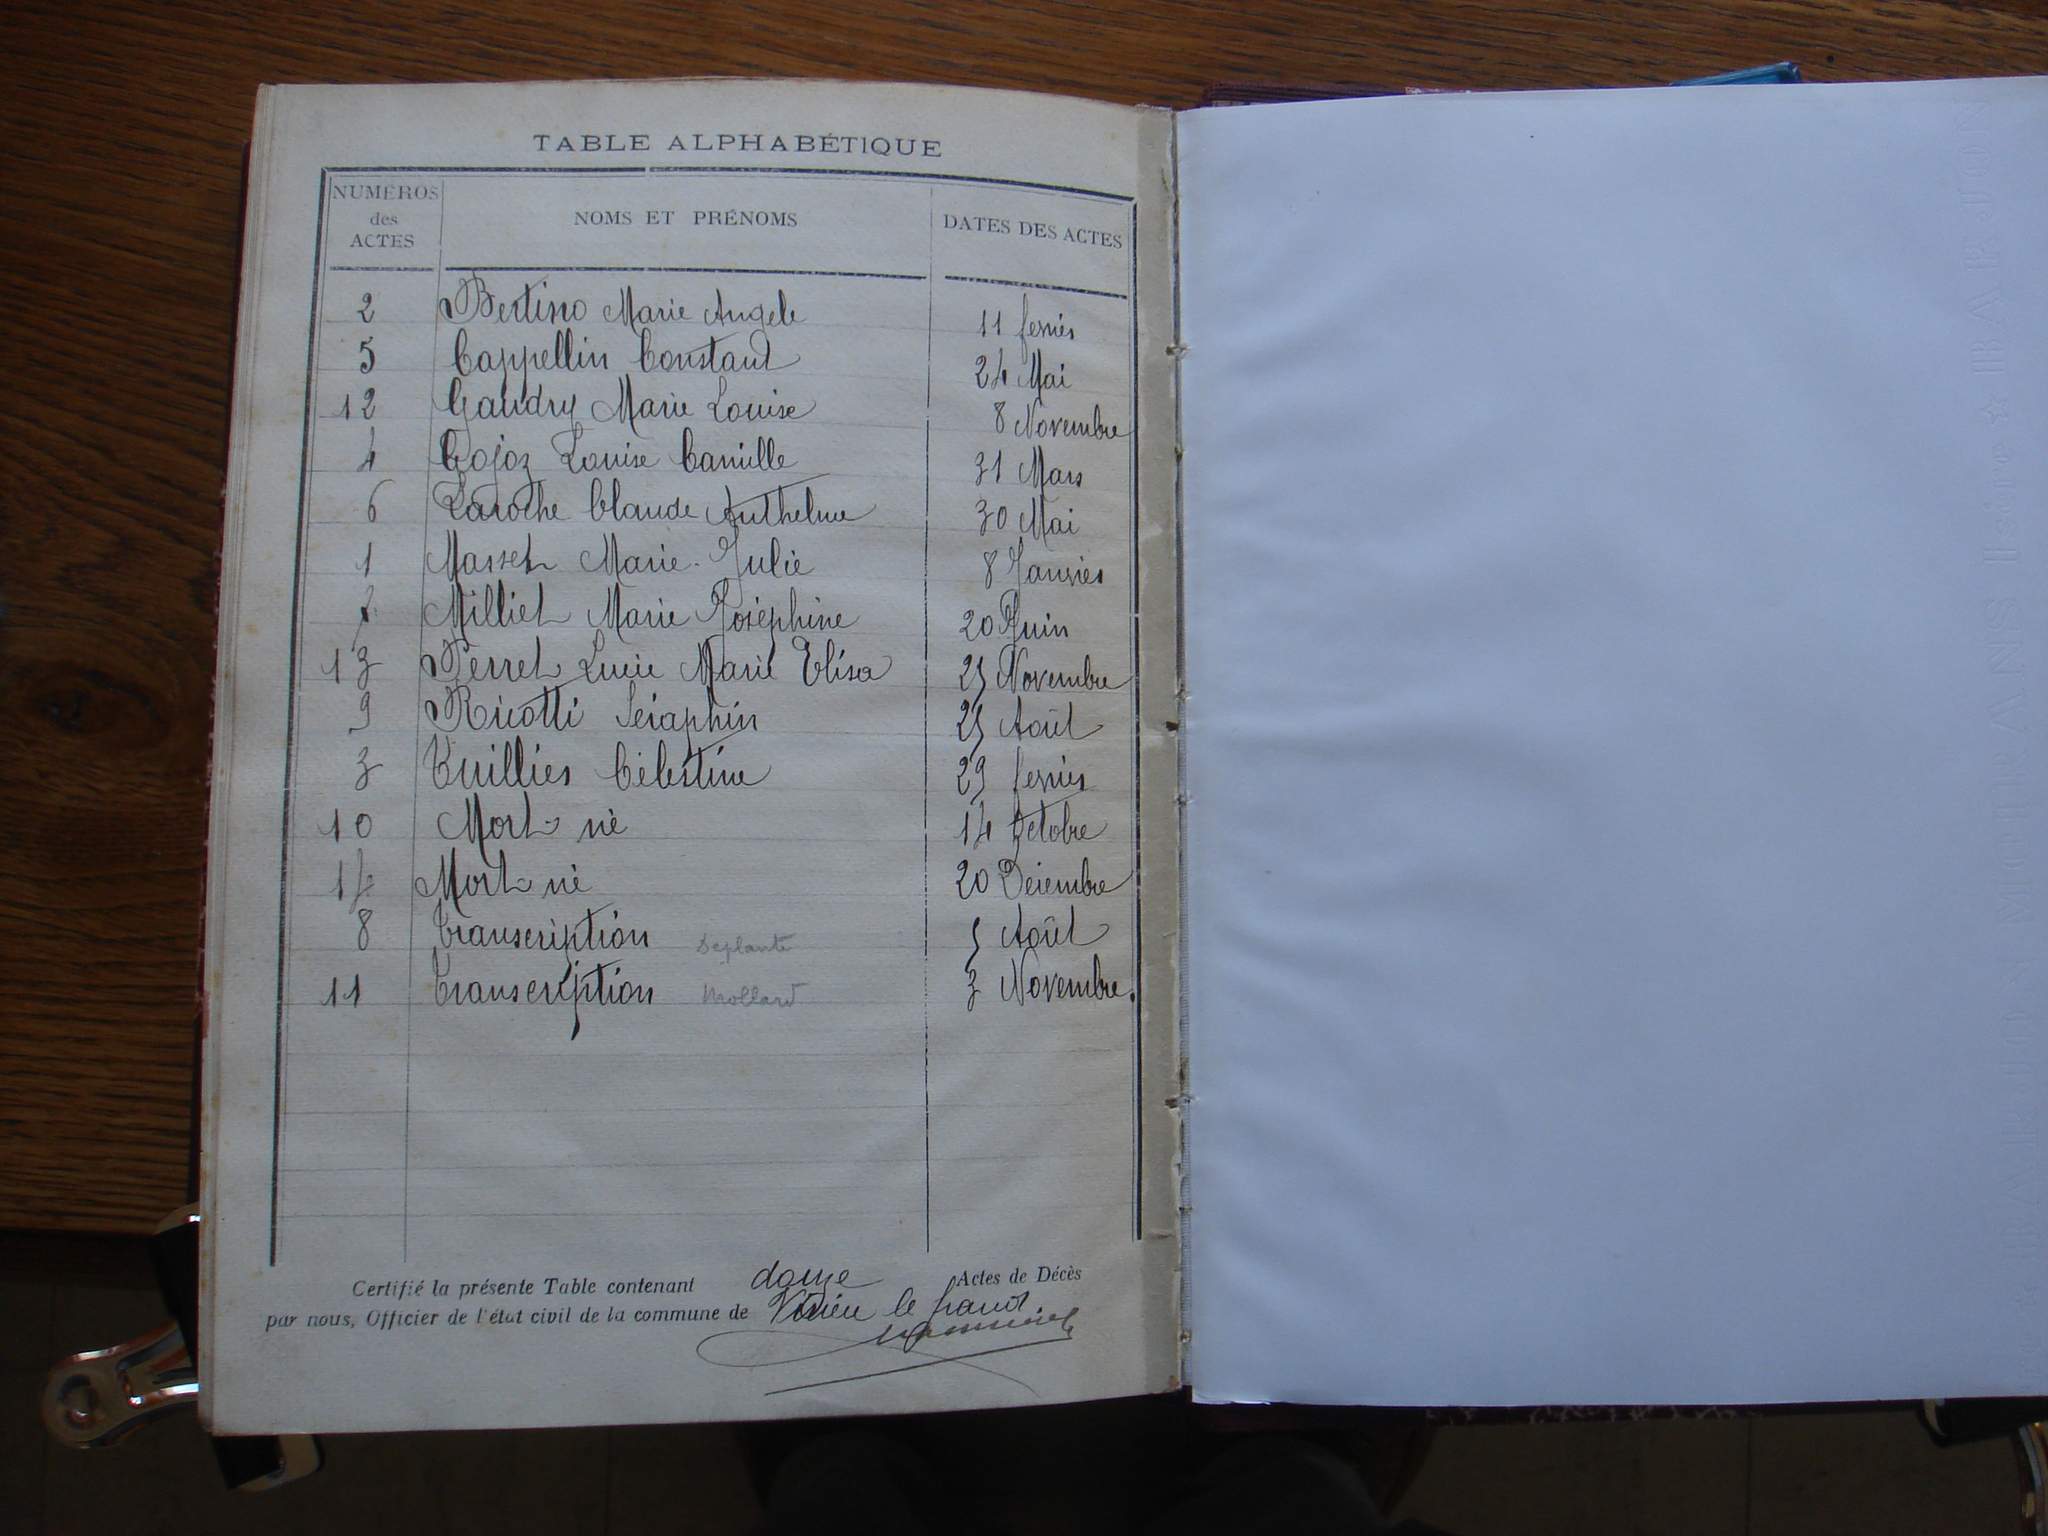 TABLE ALPHABÉTIQUE
NUMÉROS des ACTES NOMS ET PRÉNOMS DATES DES ACTES
2 Bertino Marie Angele 11 fevrier
5 Cappellin Constant 24 Mai
12 Gaudry Marie Louise 8 Novembre
4 Gojoz Louise Camille 31 Mars
6 Laroche Claude Anthelme 30 Mai
1 Masset Marie-Julie 8 Janvier
7 Milliet Marie Joséphine 20 Juin
13 Perret Lucie Marie Elisa 25 Novembre
9 Ricotti Séraphin 25 Août
3 Tuillier Célestine 29 fevrier
10 Mort-né 14 Octobre
14 Mort né 20 Décembre
8 Transcription Deplante 5 Août
11 Transcription Mollard 3 Novembre.
Certifié la présente Table contenant douze Actes de Décès
par nous, Officier de l'état civil de la commune de Virieu le grand